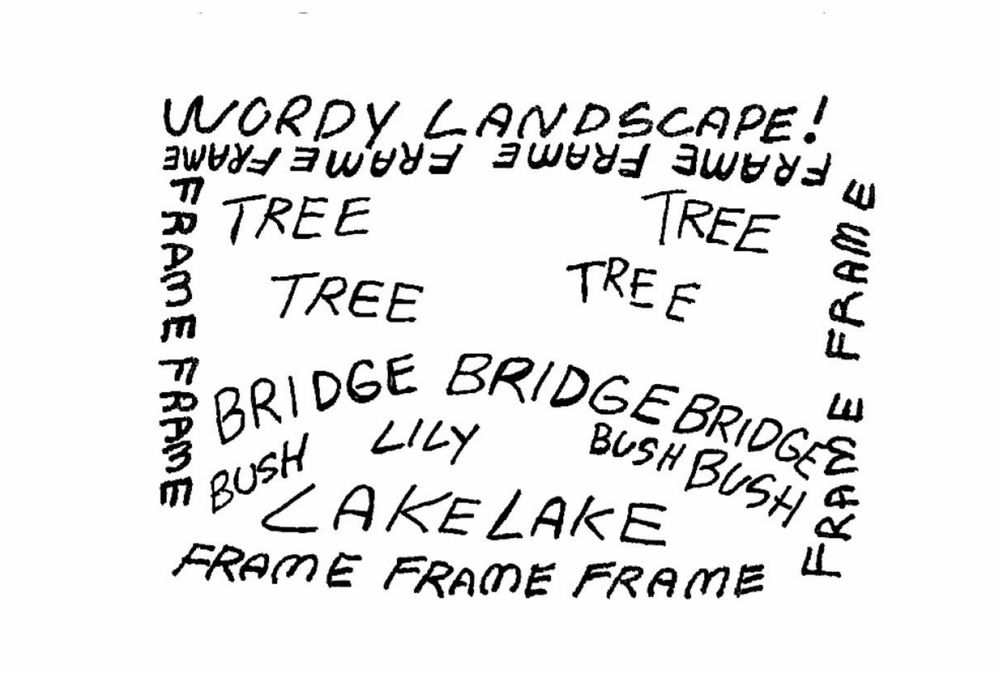 WORDY LANDSCAPE!
FRAME FRAME FRAME FRAME
FRAME FRAME
FRAME FRAME
TREE TREE
TREE TREE
BRIDGE BRIDGE BRIDGE
BUSH LILY BUSH BUSH
LAKE LAKE
FRAME FRAME FRAME